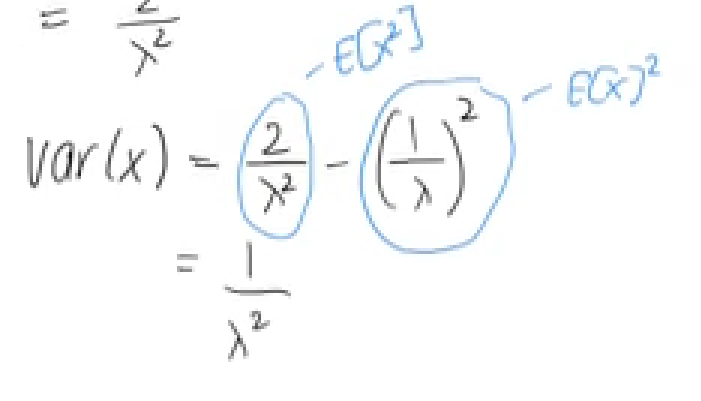 = 2/λ²
– E[x²]
– E(x)²
Var(x) = 2/λ² – (1/λ)²
= 1/λ²